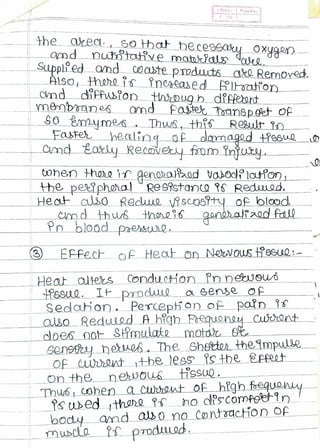 the area, so that necessary oxygen
and nutritative materials are
supplied and waste products are Removed.
Also, there is increased filtration
and diffusion through different
membranes and Faster Transport of
So Enzymes. Thus, this Result in
Faster healing of damaged tissue
and Early Recovery from injury.
when there is generalised vasodilation,
the peripheral Resistance is Reduced.
Heat also Reduce viscosity of blood
and thus there is generalized fall
in blood pressure.
③ Effect of Heat on Nervous tissue:-
Heat alters conduction in nervous
tissue. It produce a sense of
Sedation. Perception of pain is
also Reduced A high Frequency current
does not stimulate motor or
sensory nerves. The shorter the impulse
of current, the less is the Effect
on the nervous tissue.
Thus, when a current of high frequency
is used, there is no discomfort in
body and also no contraction of
muscle is produced.